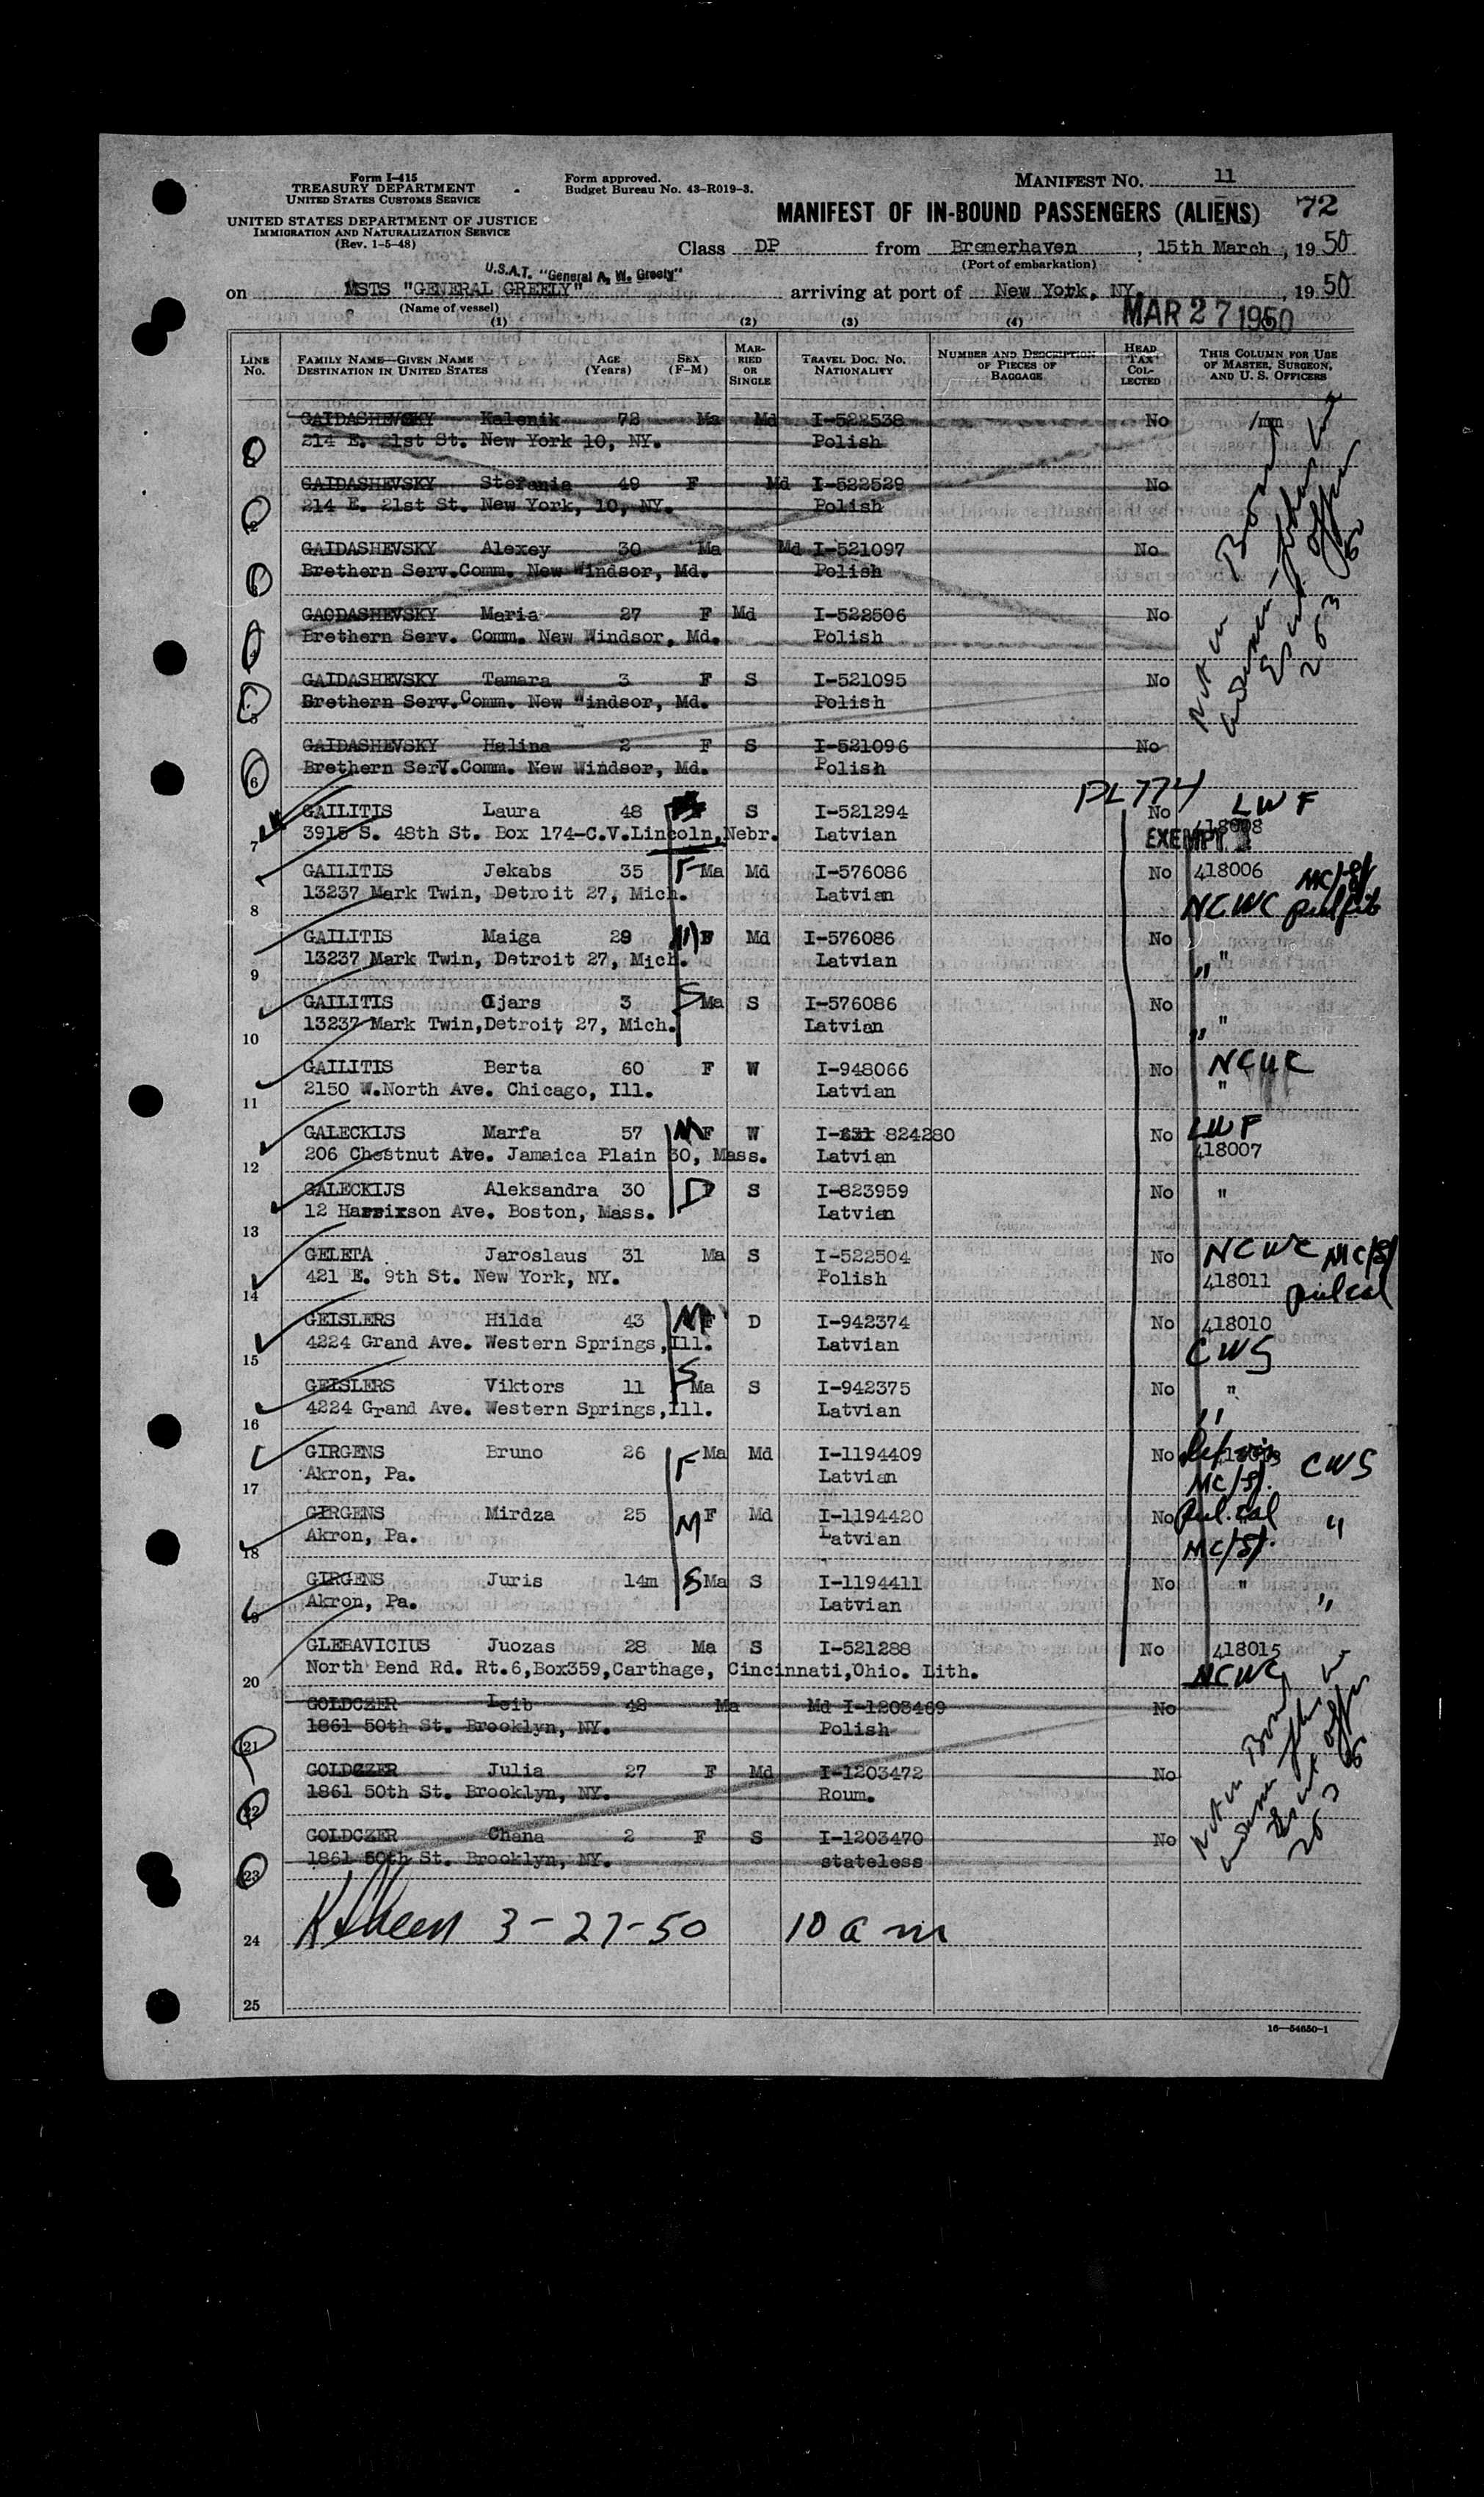 Form I-415
TREASURY DEPARTMENT
UNITED STATES CUSTOMS SERVICE
UNITED STATES DEPARTMENT OF JUSTICE
IMMIGRATION AND NATURALIZATION SERVICE
(Rev. 1-5-48)
Form approved.
Budget Bureau No. 43-R019-3.
MANIFEST NO. 11
MANIFEST OF IN-BOUND PASSENGERS (ALIENS) 72
Class DP from Bremerhaven, 15th March, 1950
(Port of embarkation)
U.S.A.T. "General A. W. Greely"
on MSTS "GENERAL GREELY" arriving at port of New York, NY. , 1950
(Name of vessel)
MAR 27 1950
(1) (2) (3) (4)
LINE NO. FAMILY NAME—GIVEN NAME DESTINATION IN UNITED STATES AGE (Years) SEX (F-M) MARRIED OR SINGLE TRAVEL DOC. NO. NATIONALITY NUMBER AND DESCRIPTION OF PIECES OF BAGGAGE HEAD TAX COLLECTED THIS COLUMN FOR USE OF MASTER, SURGEON, AND U. S. OFFICERS
GAIDASHEVSKY Kalenik 72 Ma Md I-522538 No
214 E. 21st St. New York 10, NY. Polish
GAIDASHEVSKY Stefania 49 F Md I-522529 No
2 214 E. 21st St. New York, 10, NY. Polish
GAIDASHEVSKY Alexey 30 Ma Md I-521097 No
Brethern Serv.Comm. New Windsor, Md. Polish
GAODASHEVSKY Maria 27 F Md I-522506 No
Brethern Serv. Comm. New Windsor, Md. Polish
GAIDASHEVSKY Tamara 3 F S I-521095 No
5 Brethern Serv.Comm. New Windsor, Md. Polish
GAIDASHEVSKY Halina 2 F S I-521096 No
6 Brethern Serv.Comm. New Windsor, Md. Polish
PL 774 LWF
GAILITIS Laura 48 S I-521294 No 418008
7 3915 S. 48th St. Box 174-C.V.Lincoln,Nebr. Latvian EXEMPT
GAILITIS Jekabs 35 F Ma Md I-576086 No 418006 MC/SP
8 13237 Mark Twin, Detroit 27, Mich. Latvian NCWC
GAILITIS Maiga 29 M F Md I-576086 No "
9 13237 Mark Twin, Detroit 27, Mich. Latvian "
GAILITIS Ojars 3 S Ma S I-576086 No "
10 13237 Mark Twin,Detroit 27, Mich. Latvian "
GAILITIS Berta 60 F W I-948066 No NCWC
11 2150 W.North Ave. Chicago, Ill. Latvian "
GALECKIJS Marfa 57 M F W I- 824280 No LWF
12 206 Chestnut Ave. Jamaica Plain 30, Mass. Latvian 418007
GALECKIJS Aleksandra 30 D S I-823959 No "
13 12 Harrixson Ave. Boston, Mass. Latvian
GELETA Jaroslaus 31 Ma S I-522504 No NCWC MC/SP
14 421 E. 9th St. New York, NY. Polish 418011
GEISLERS Hilda 43 M F D I-942374 No 418010
15 4224 Grand Ave. Western Springs,Ill. Latvian CWS
GEISLERS Viktors 11 S Ma S I-942375 No "
16 4224 Grand Ave. Western Springs,Ill. Latvian "
GIRGENS Bruno 26 F Ma Md I-1194409 No CWS
17 Akron, Pa. Latvian MC/SP.
GIRGENS Mirdza 25 M F Md I-1194420 No "
18 Akron, Pa. Latvian MC/SP.
GIRGENS Juris 14m S Ma S I-1194411 No "
19 Akron, Pa. Latvian "
GLEBAVICIUS Juozas 28 Ma S I-521288 No 418015
20 North Bend Rd. Rt.6,Box359,Carthage, Cincinnati,Ohio. Lith. NCWC
GOLDCZER Leib 48 Ma Md I-1203469 No
21 1861 50th St. Brooklyn, NY. Polish
GOLDCZER Julia 27 F Md I-1203472 No
22 1861 50th St. Brooklyn, NY. Roum.
GOLDCZER Chana 2 F S I-1203470 No
23 1861 50th St. Brooklyn, NY. stateless
24 3-27-50 10 am
25
16—54650-1